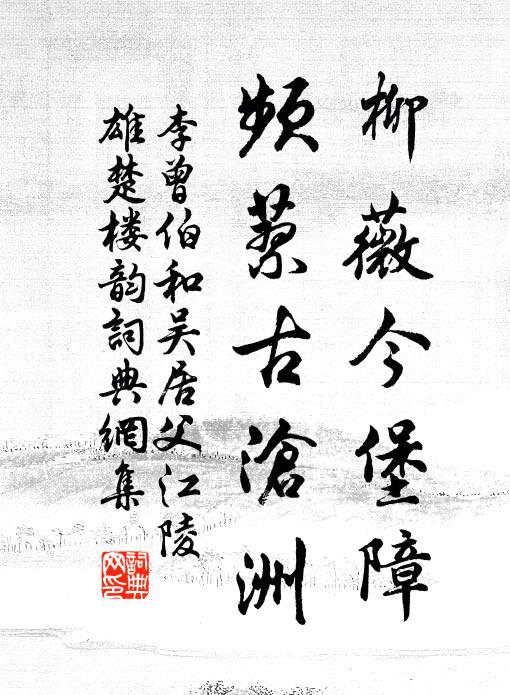 柳薇今堡障
頻蘩古滄洲
李曾伯和吴居父江陵
雄楚楼韵詞典網集
詞典网印